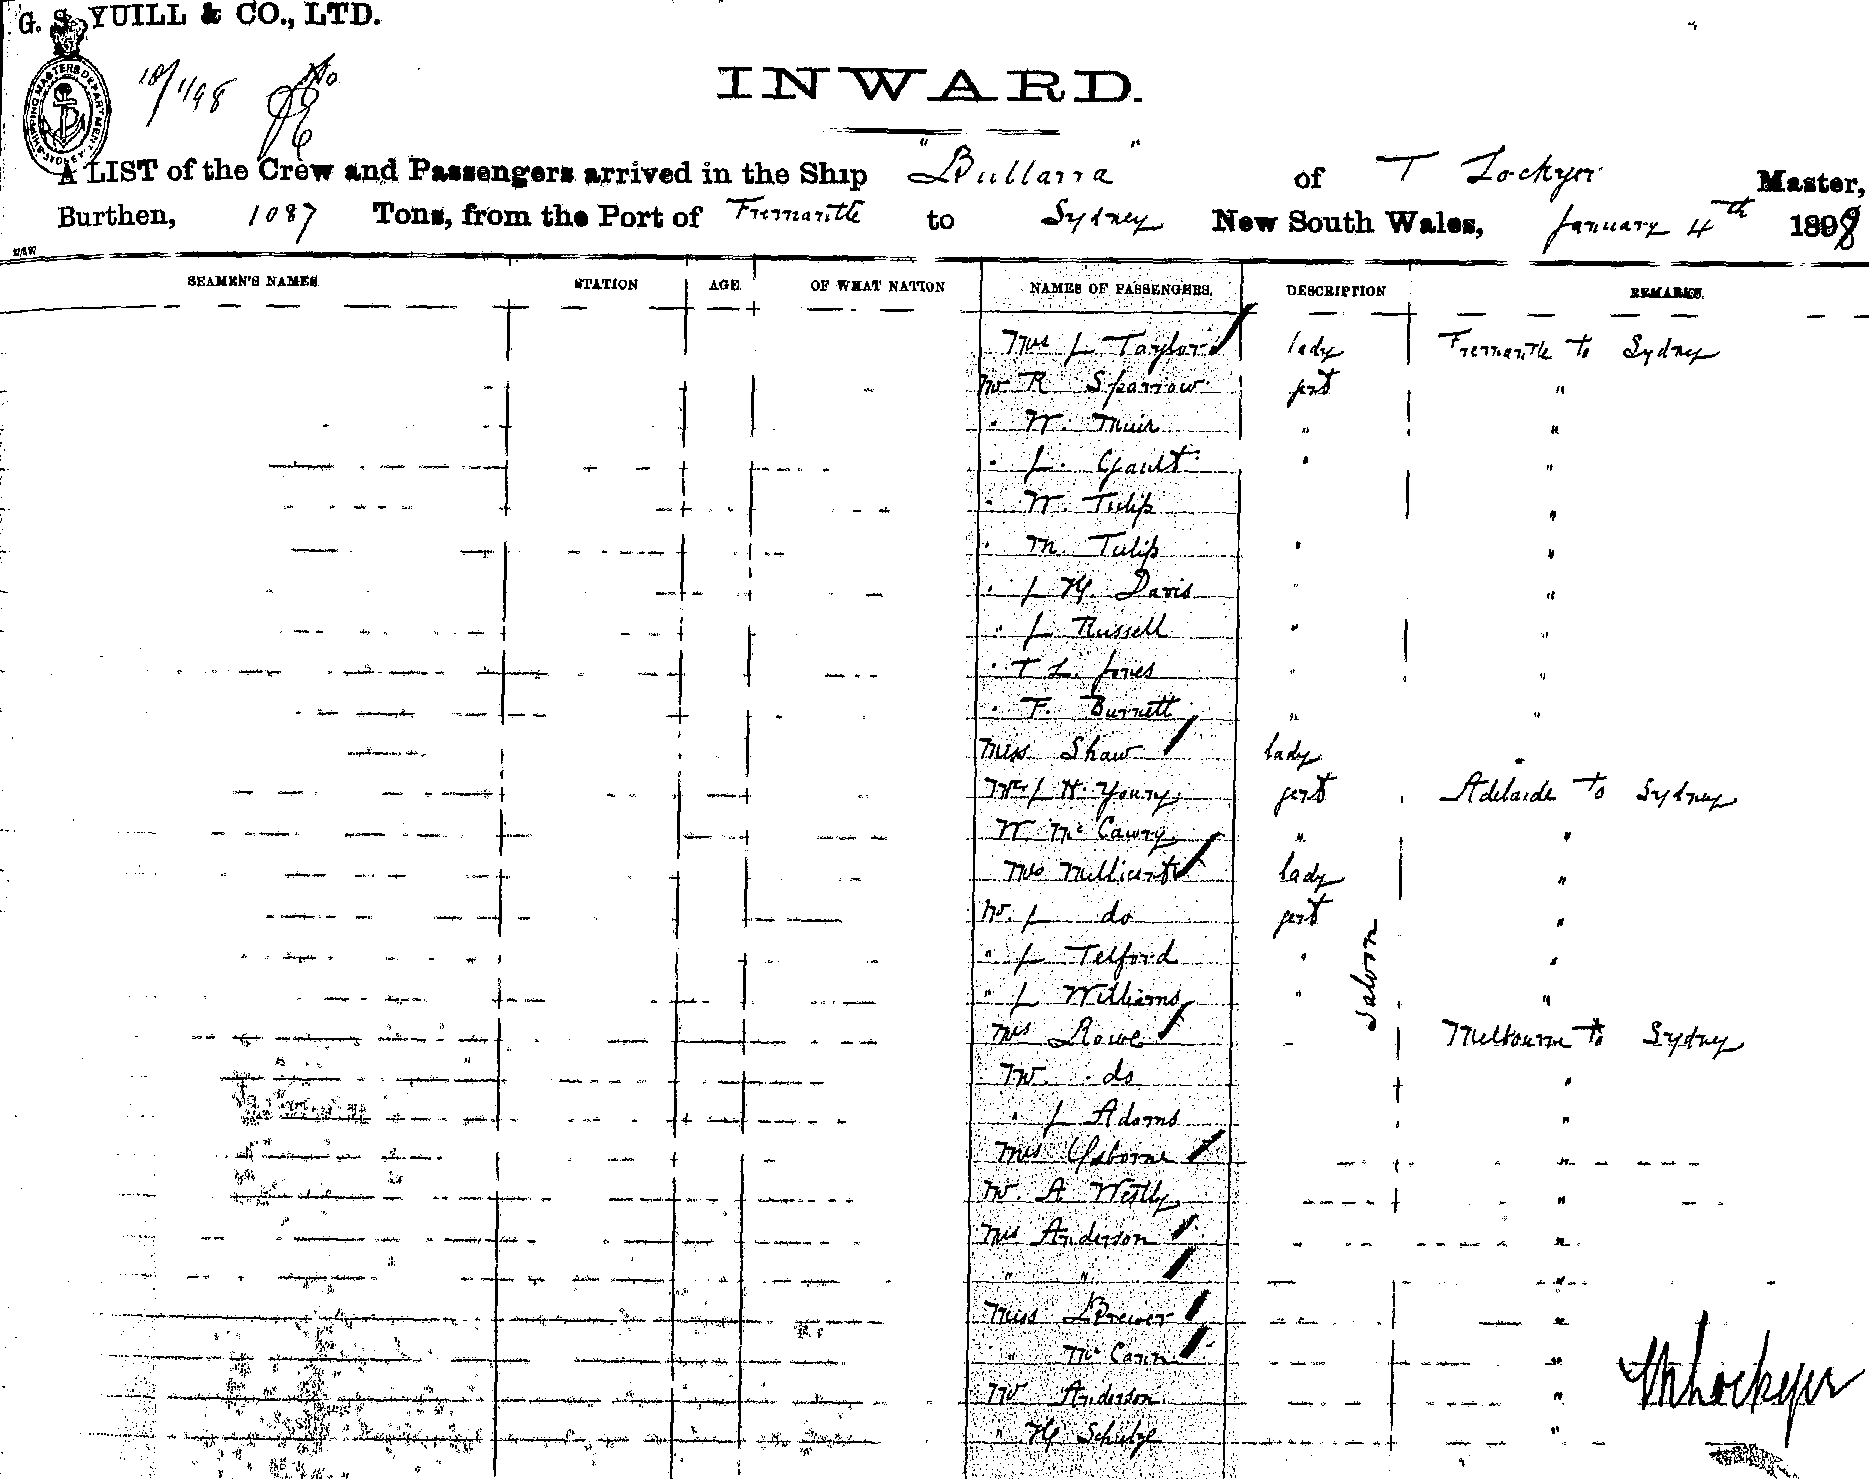 G. S. YUILL & CO., LTD.
10/1/98
INWARD.
A LIST of the Crew and Passengers arrived in the Ship "Bullarra" of T Lockyer Master,
Burthen, 1087 Tons, from the Port of Fremantle to Sydney New South Wales, January 4th 1898
SEAMEN'S NAMES STATION AGE OF WHAT NATION NAMES OF PASSENGERS. DESCRIPTION REMARKS.
Mrs J Taylor lady Fremantle to Sydney
Mr R Sparrow gent "
" W. Muir " "
" J. Gault " "
" W. Tulip "
" M. Tulip " "
" J H. Davis " "
" J Russell " "
" T L. Jones " "
" F. Burnett " "
Miss Shaw lady "
Mr J H. Young gent Adelaide to Sydney
W. Mc " "
Mrs Millicent lady "
Mr. J do gent "
" J Telford " "
" J Williams " "
Saloon
Mrs Rowe Melbourne to Sydney
Mr. do "
" J Adams "
Mrs Osborne "
Mr. A Westly "
Mrs Anderson "
" " "
Miss Brewer "
" Mc Cann "
Mr Anderson "
" H Schulze "
Lockyer